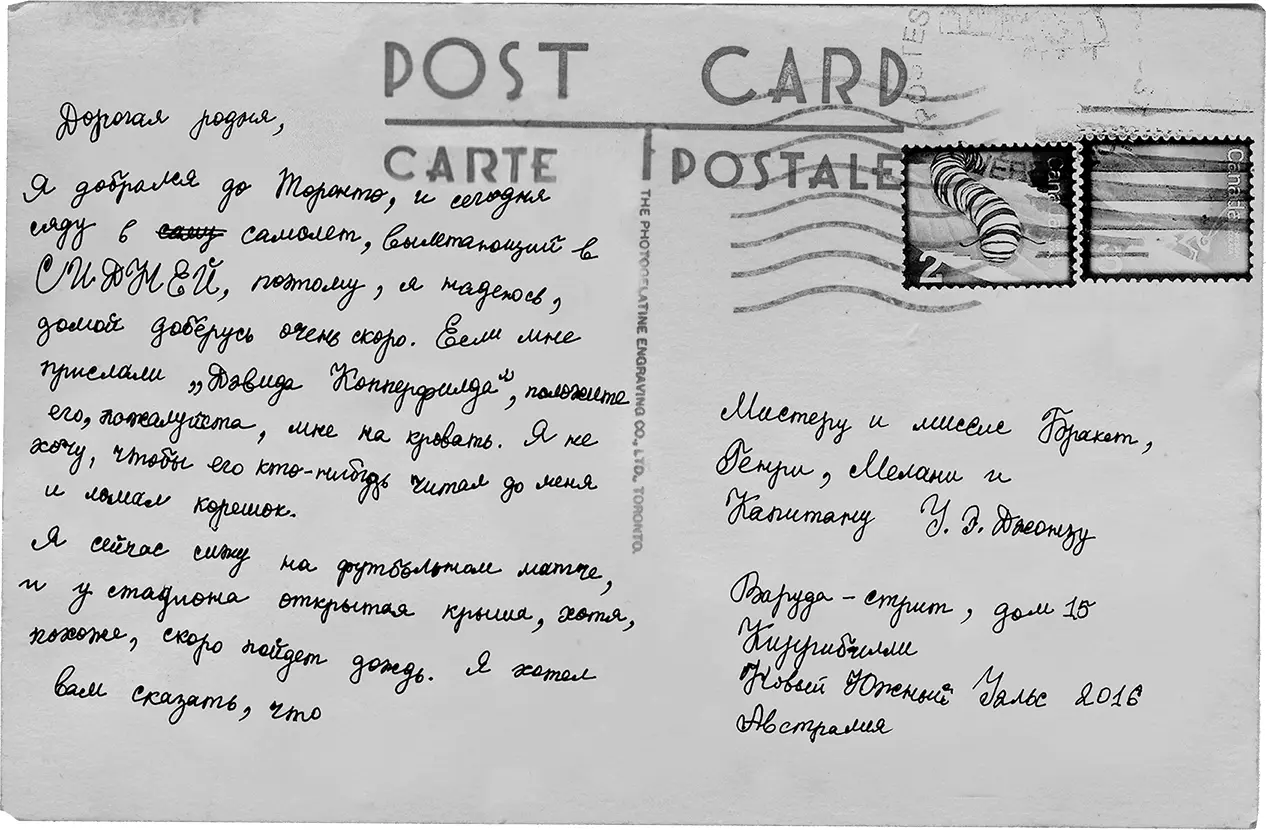 POST CARD
CARTE POSTALE
POSTES
THE PHOTOGELATINE ENGRAVING CO., LTD., TORONTO.
Canada
2
Canada
Дорогая родня,
Я добрался до Торонто, и сегодня
сяду в самолет, вылетающий в
СИДНЕЙ, поэтому, я надеюсь,
домой доберусь очень скоро. Если мне
прислали „Дэвида Копперфилда", положите
его, пожалуйста, мне на кровать. Я не
хочу, чтобы его кто-нибудь читал до меня
и ломал корешок.
Я сейчас сижу на футбольном матче,
и у стадиона открытая крыша, хотя,
похоже, скоро пойдет дождь. Я хотел
вам сказать, что
Мистеру и миссис Бракет,
Генри, Мелани и
Капитану У. Э. Джонзу
Варуда-стрит, дом 15
Кирибилли
Новый Южный Уэльс 2016
Австралия